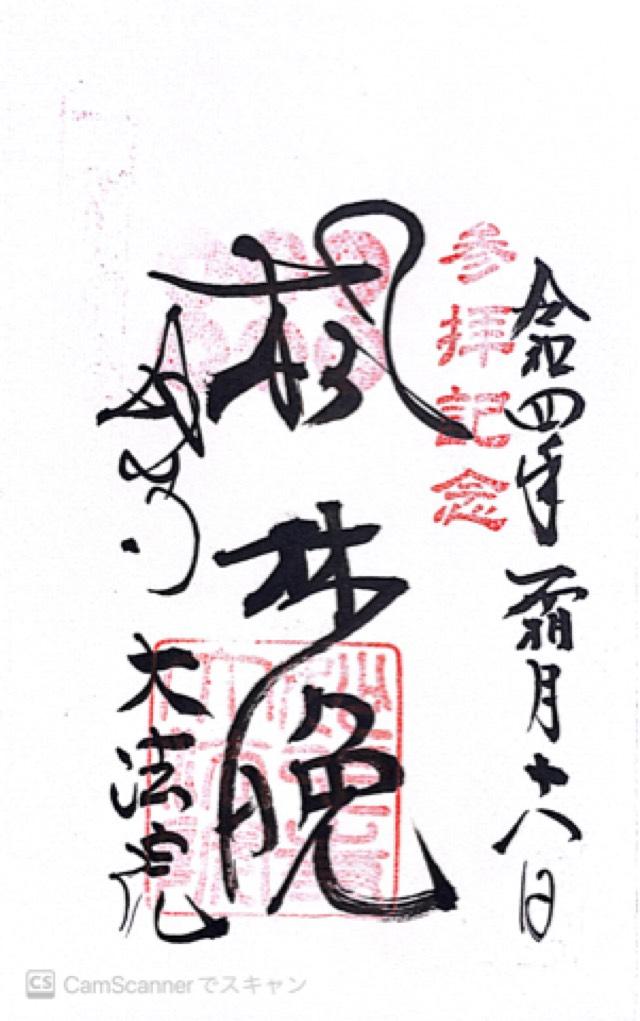 令和四年霜月十八日
参拝記念
楓林晩
大法院
CamScannerでスキャン